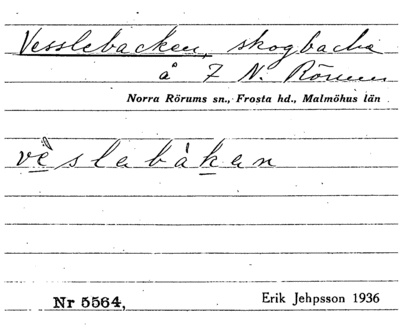 Vesslebacken, skogbacke
å 7 N. Rörum
Norra Rörums sn., Frosta hd., Malmöhus län
vèslabákan
Nr 5564,
Erik Jehpsson 1936